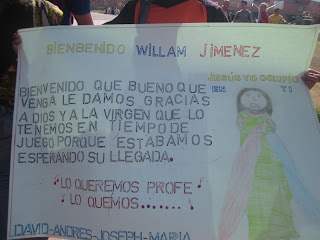 BIENBENIDO WILLAM JIMENEZ
JESÚS TU CONMIGO
DIOS Y TI
BIENVENIDO QUE BUENO QUE
VENGA LE DAMOS GRACIAS
A DIOS Y A LA VIRGEN QUE LO
TENEMOS EN TIEMPO DE
JUEGO PORQUE ESTABAMOS
ESPERANDO SU LLEGADA.
LO QUEREMOS PROFE
LO QUEMOS.......
DAVID-ANDRES-JOSEPH-MARIA